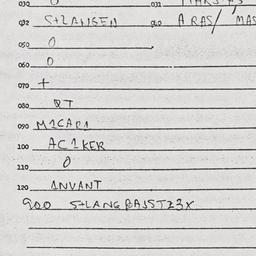 030 0 031 MARS
S+LANGEN ARAS/ MAS
050 0
060 0
070 +
080 QT
090 M1CAR1
100 AC1KER
110 0
120 ANVANT
900 S+LANGBASST23X